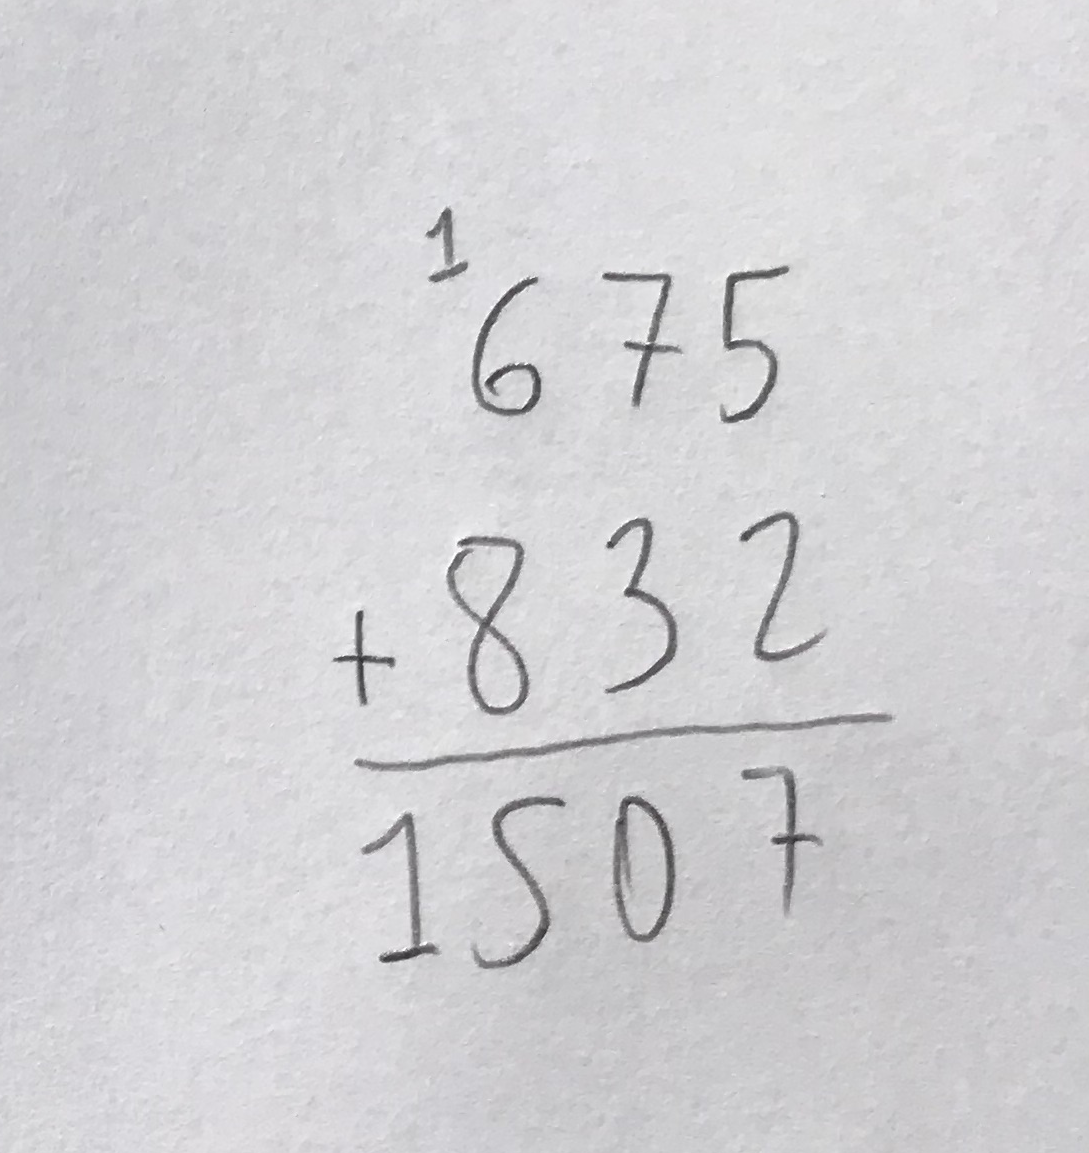 1
675
+ 832
1507